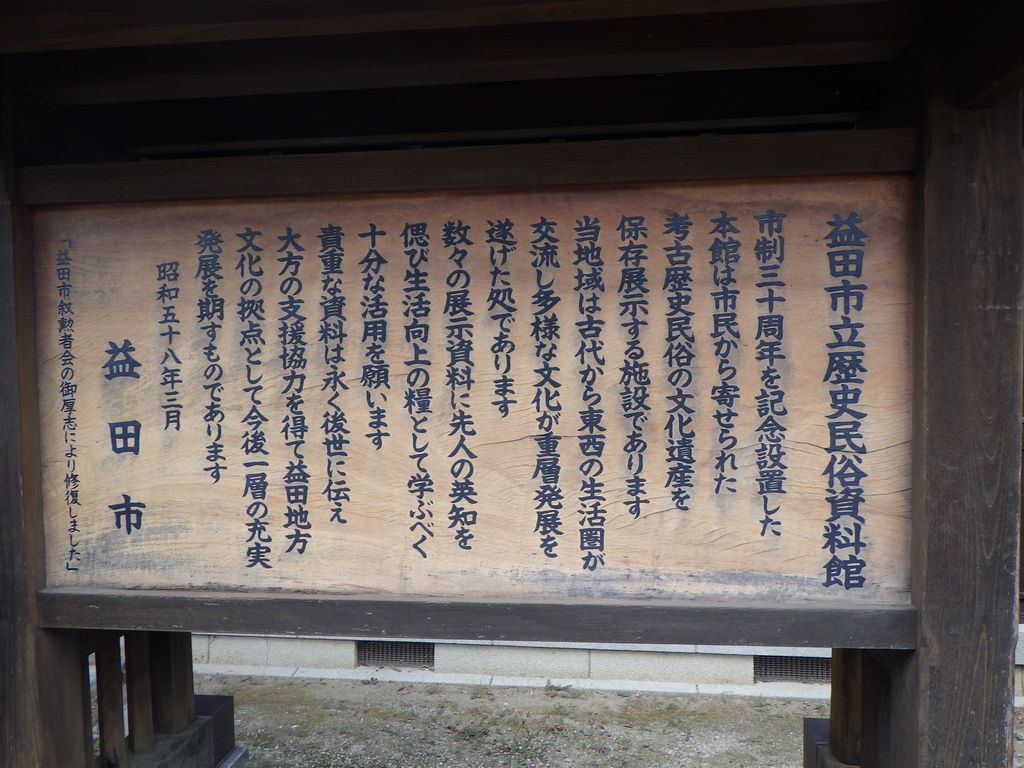 益田市立歴史民俗資料館
市制三十周年を記念設置した
本館は市民から寄せられた
考古歴史民俗の文化遺産を
保存展示する施設であります
当地域は古代から東西の生活圏が
交流し多様な文化が重層発展を
遂げた処であります
数々の展示資料に先人の英知を
偲び生活向上の糧として学ぶべく
十分な活用を願います
貴重な資料は永く後世に伝え
大方の支援協力を得て益田地方
文化の拠点として今後一層の充実
発展を期すものであります
昭和五十八年三月
益田市
「益田市叙勲者会の御厚志により修復しました」